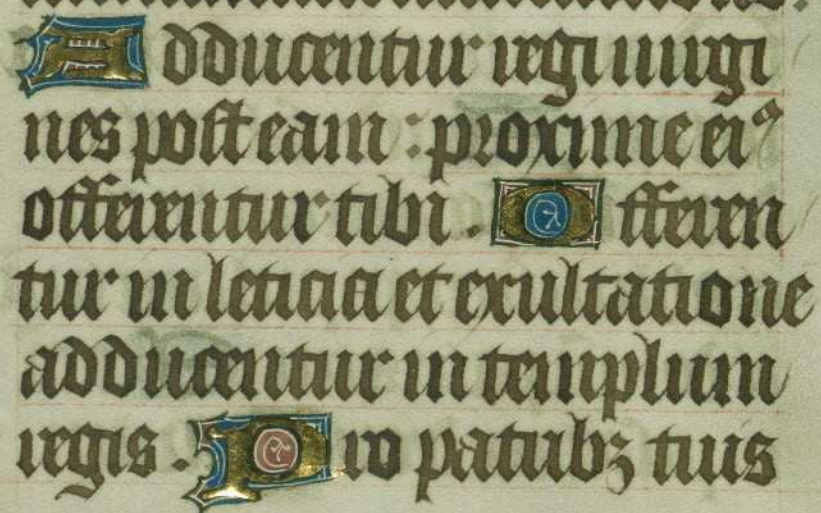 Adducentur regi uirgi
nes post eam : proxime eiꝰ
offerentur tibi . Offeren
tur in leticia et exultatione
adducentur in templum
regis . Pro patribꝫ tuis